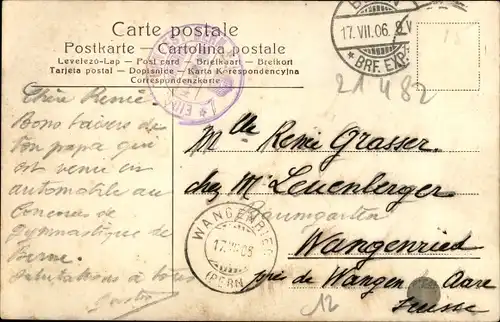 Carte postale
Postkarte — Cartolina postale
Levelező-Lap — Post card — Briefkaart — Brefkort
Tarjeta postal — Dopisnice — Karta Korespondencyjna
Correspondenzkarte
17. VII. 06. 8 V
* BRF. EXP. *
15
21482
Chère Renée
Bons baisers de
ton papa qui
est venu en
automobile au
Concours de
gymnastique de
Berne.
Salutations à tous
Gaston
Mlle Renée Grasser
chez Mr Leuenberger
Baumgarten
Wangenried
près de Wangen s Aare
Suisse
WANGENRIED
17. VII. 06
(BERN)
12